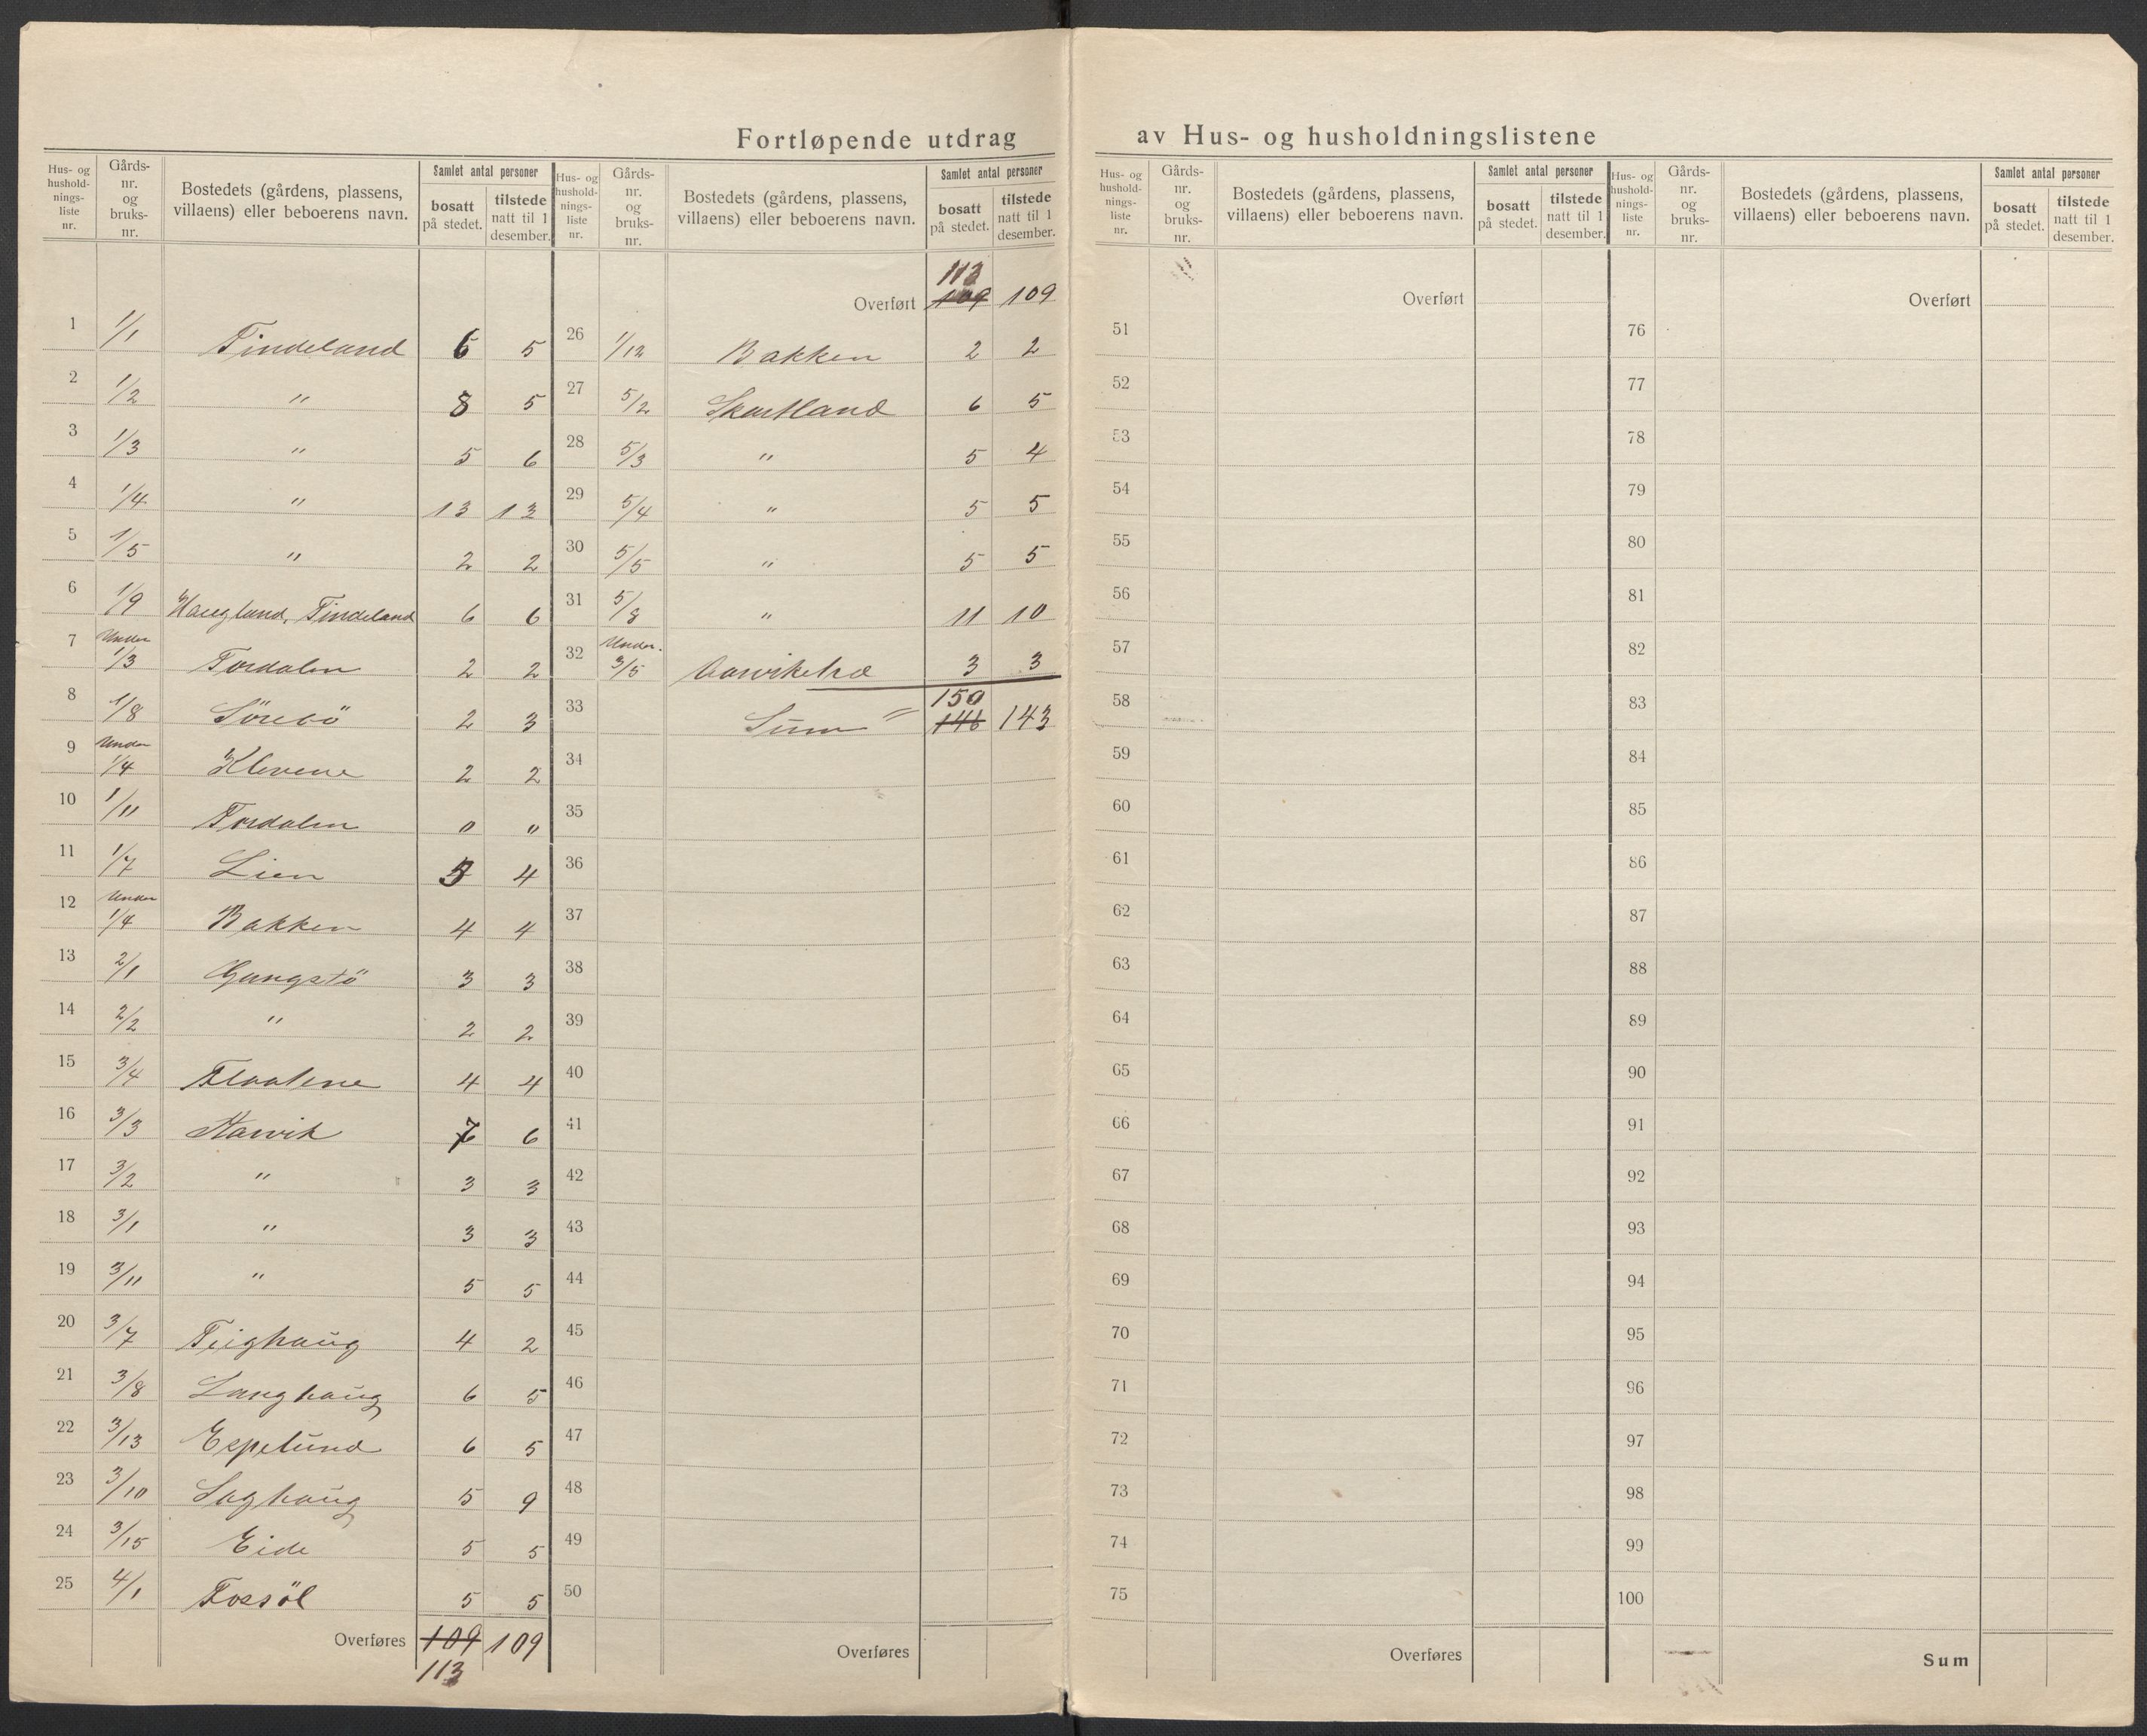 Fortløpende utdrag av Hus- og husholdningslistene
Hus- og hushold-nings-liste nr. Gårds-nr. og bruks-nr. Bostedets (gårdens, plassens, villaens) eller beboerens navn. Samlet antal personer bosatt på stedet. tilstede natt til 1 desember.
1 1/1 Tindeland 6 5
2 1/2 " 8 5
3 1/3 " 5 6
4 1/4 " 13 13
5 1/5 " 2 2
6 1/9 Haugland, Tindeland 6 6
7 Under 1/3 Tordalen 2 2
8 1/8 Sörebö 2 3
9 Under 1/4 Klevene 2 2
10 1/11 Tordalen 0 0
11 1/7 Lien 5 4
12 Under 1/4 Bakken 4 4
13 2/1 Gangstö 3 3
14 2/2 " 2 2
15 3/4 Flaatene 4 4
16 3/3 Aarvik 7 6
17 3/2 " 3 3
18 3/1 " 3 3
19 3/11 " 5 5
20 3/7 Teighaug 4 2
21 3/8 Langhaug 6 5
22 3/13 Espelund 6 5
23 3/10 Laghaug 5 9
24 3/15 Eide 5 5
25 4/1 Fossöl 5 5
Overføres 109 109
113
Hus- og hushold-nings-liste nr. Gårds-nr. og bruks-nr. Bostedets (gårdens, plassens, villaens) eller beboerens navn. Samlet antal personer bosatt på stedet. tilstede natt til 1 desember.
113
Overført 109 109
26 1/12 Bakken 2 2
27 5/2 Skartland 6 5
28 5/3 " 5 4
29 5/4 " 5 5
30 5/5 " 5 5
31 5/8 " 11 10
32 Under. 3/5 3 3
150
33 Sum " 146 143
34
35
36
37
38
39
40
41
42
43
44
45
46
47
48
49
50
Overføres
Hus- og hushold-nings-liste nr. Gårds-nr. og bruks-nr. Bostedets (gårdens, plassens, villaens) eller beboerens navn. Samlet antal personer bosatt på stedet. tilstede natt til 1 desember.
Overført
51
52
53
54
55
56
57
58
59
60
61
62
63
64
65
66
67
68
69
70
71
72
73
74
75
Overføres
Hus- og hushold-nings-liste nr. Gårds-nr. og bruks-nr. Bostedets (gårdens, plassens, villaens) eller beboerens navn. Samlet antal personer bosatt på stedet. tilstede natt til 1 desember.
Overført
76
77
78
79
80
81
82
83
84
85
86
87
88
89
90
91
92
93
94
95
96
97
98
99
100
Sum